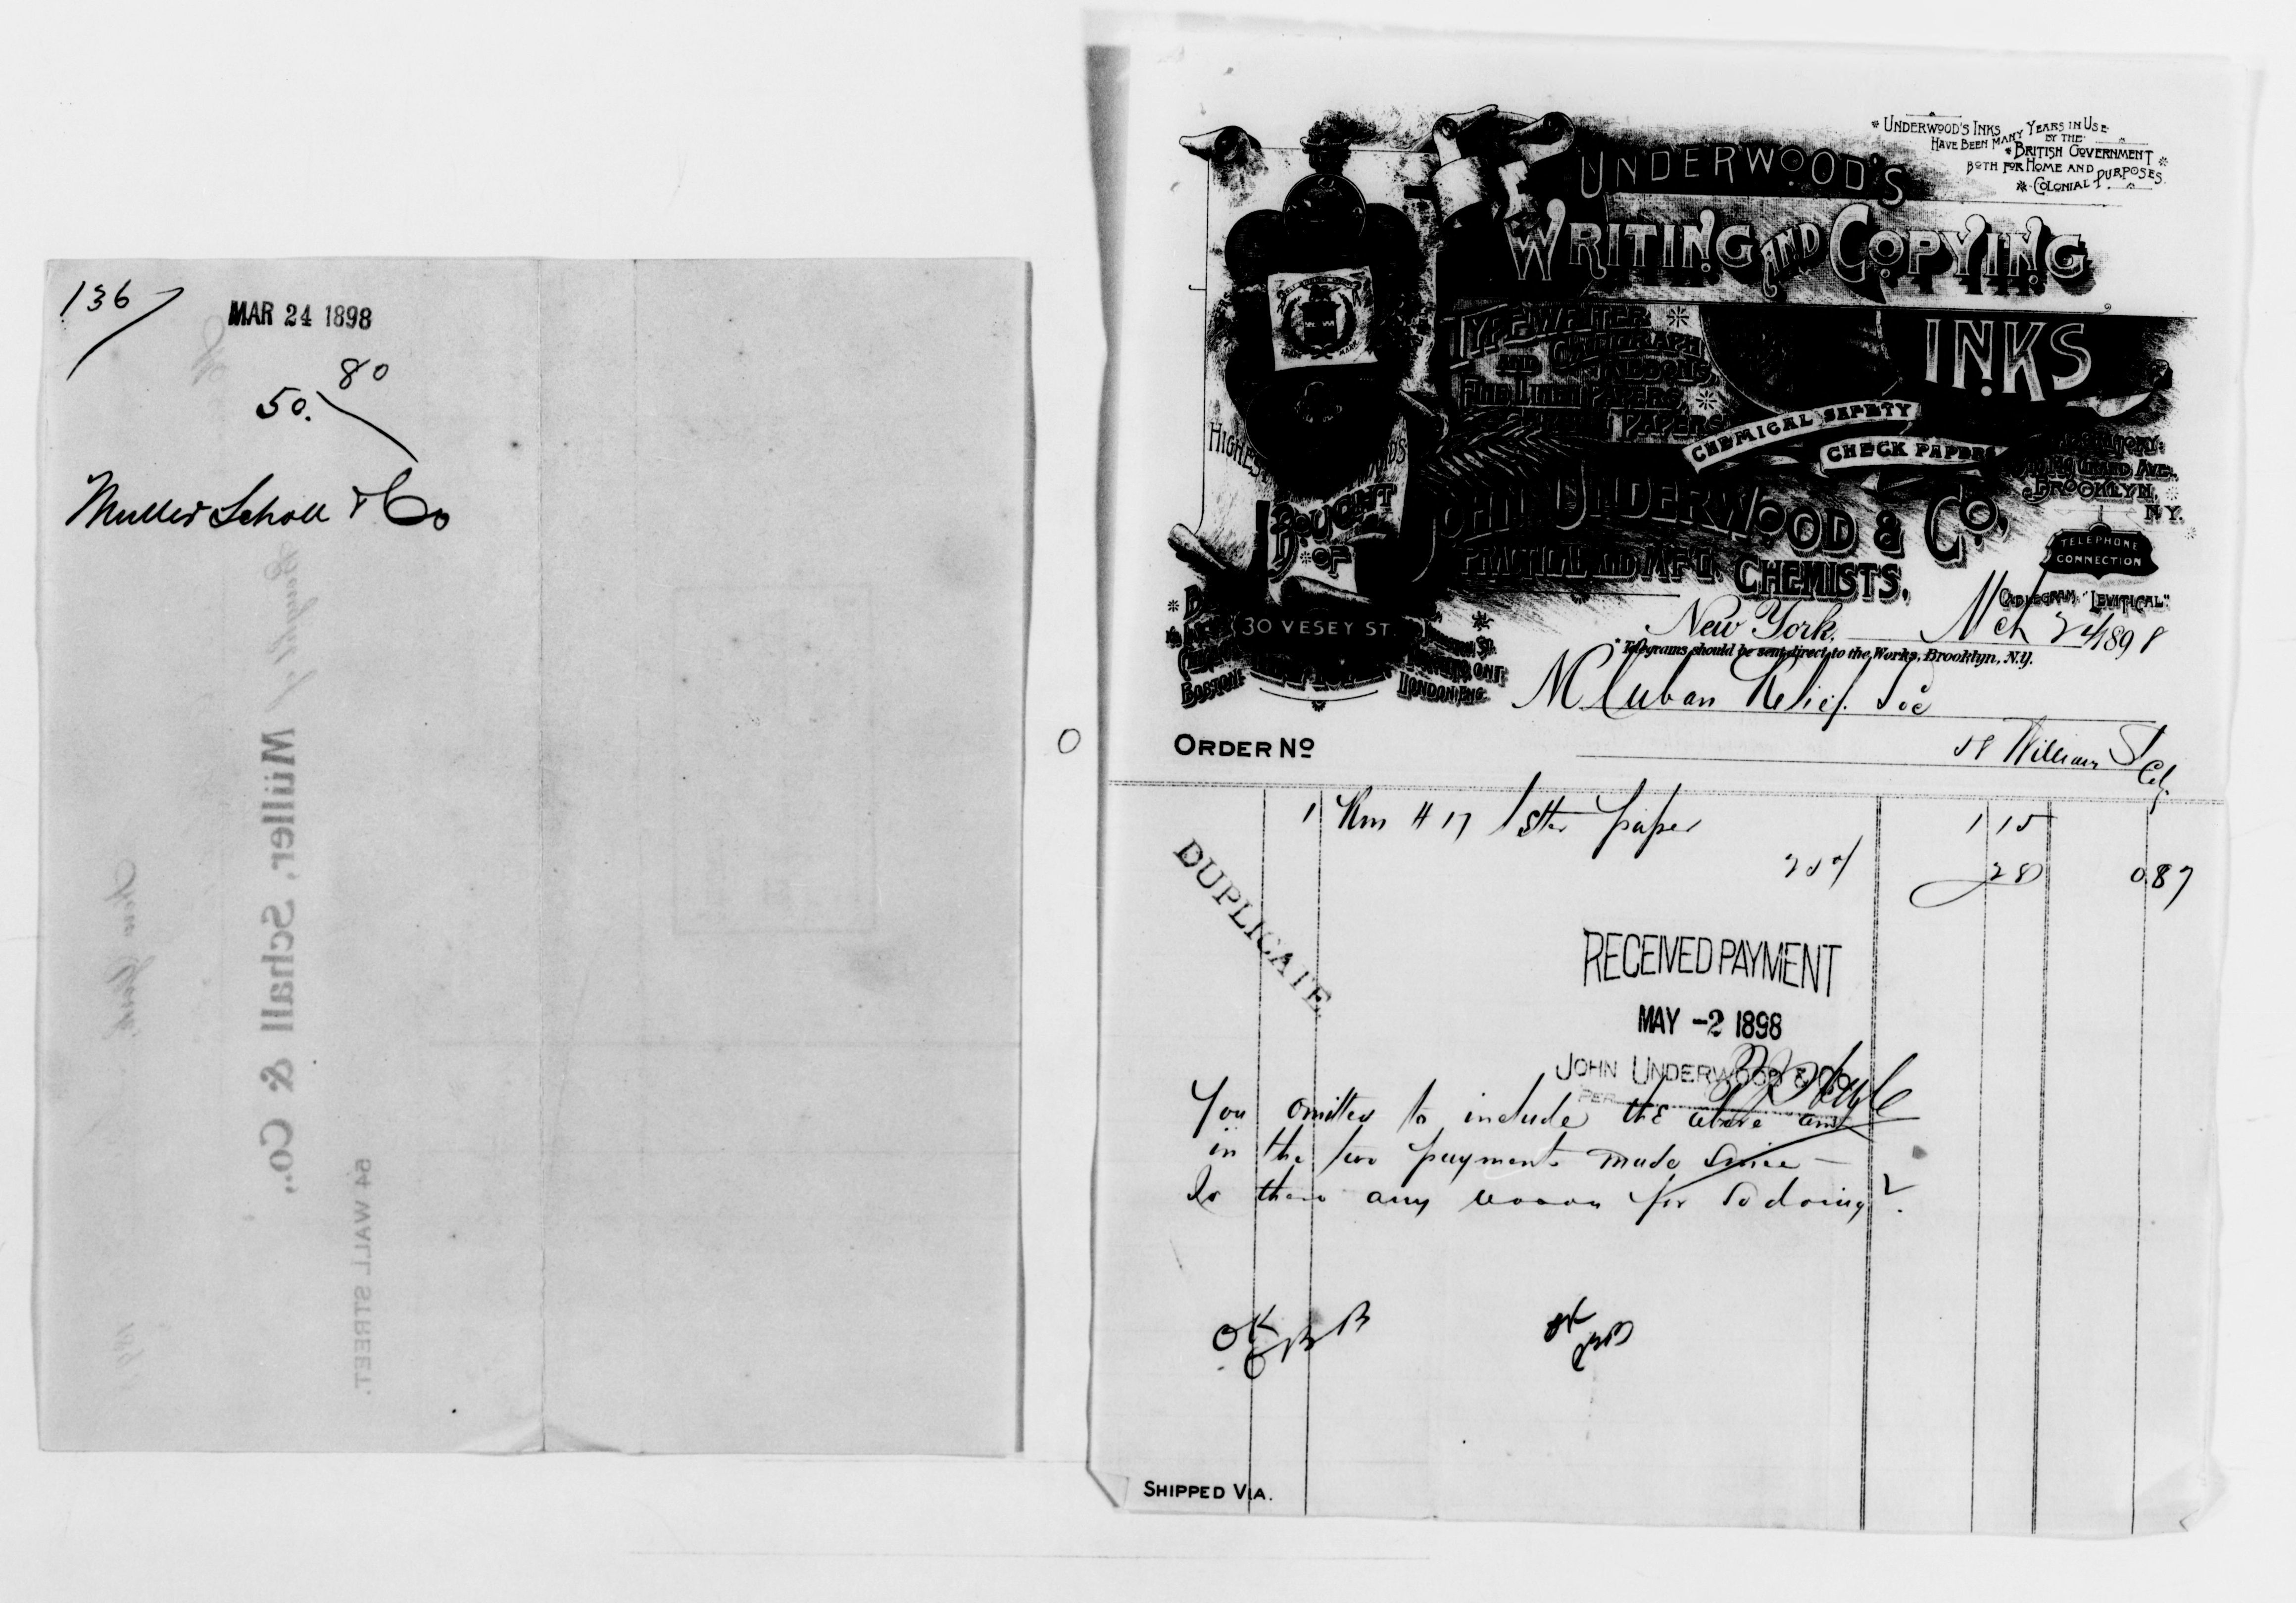 136
MAR 24 1898
50.80
Muller Schall & Co
Bought of
Müller, Schall & Co.,
54 WALL STREET.
New York,
* UNDERWOOD'S INKS
HAVE BEEN MANY YEARS IN USE
BY THE
* BRITISH GOVERNMENT *
BOTH FOR HOME AND
* COLONIAL PURPOSES.
UNDERWOOD'S
WRITING AND COPYING
INKS
TYPEWRITER
AND CALIGRAPH
RIBBONS,
FINE LINEN PAPERS,
PAPERS
CHEMICAL SAFETY
CHECK PAPERS
HIGHEST
BOUGHT
OF
JOHN UNDERWOOD & CO,
PRACTICAL AND M'F'G. CHEMISTS,
AVE.
BROOKLYN,
N.Y.
TELEPHONE
CONNECTION
CABLEGRAM "LEVITICAL"
30 VESEY ST.
BOSTON
LONDON ENG.
New York, Mch 24 1898
* Telegrams should be sent direct to the Works, Brooklyn, N.Y.
M Cuban Relief Soc
ORDER No
William St
City
1 Rm # 17 Letter paper 1 15
25% 28 087
DUPLICATE.
RECEIVED PAYMENT
MAY -2 1898
JOHN UNDERWOOD & CO.
PER
You omitted to include the above amt
in the two payments made since —
Is there any reason for so doing?
OK
OK
SHIPPED VIA.